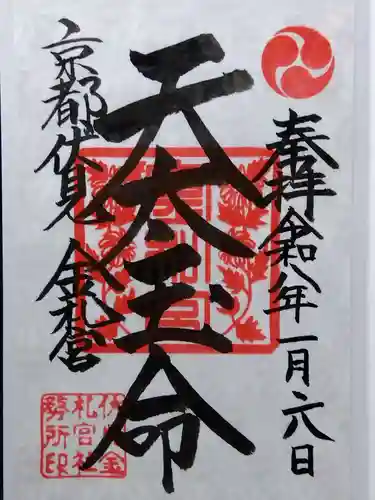 奉拝
令和八年一月六日
天太玉命
京都伏見 金札宮
金札宮
伏見金
札宮社
務所印